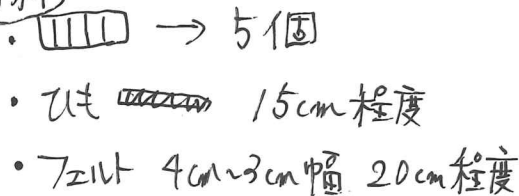 ・ → 5個
・ひも 15cm程度
・フェルト 4cm~3cm幅 20cm程度